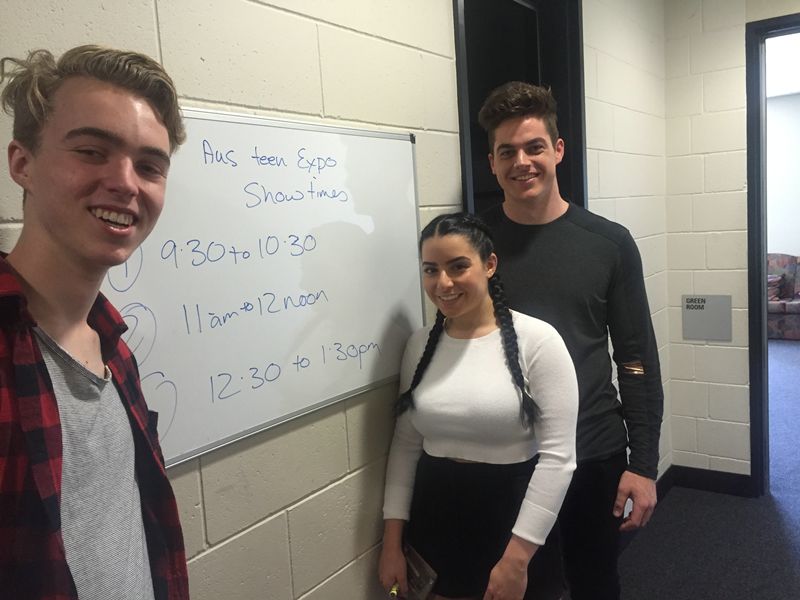 Aus teen Expo
Showtimes
1 9:30 to 10:30
2 11am to 12 noon
3 12:30 to 1:30pm
GREEN
ROOM